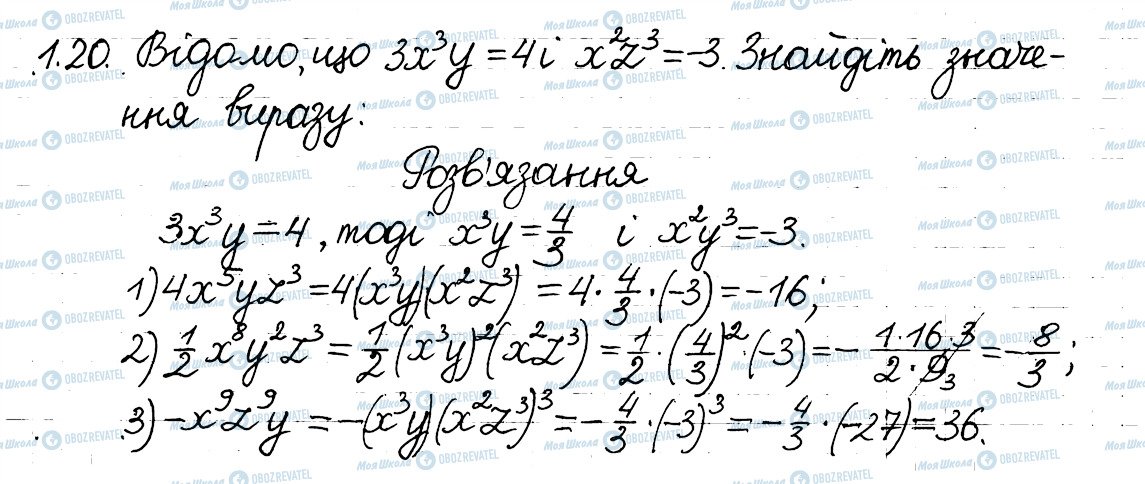 1.20. Відомо, що 3x³y = 4 і x²z³ = -3. Знайдіть значе-
ння виразу:
Розв'язання
3x³y = 4, тоді x³y = 4/3 і x²y³ = -3.
1) 4x⁵yz³ = 4(x³y)(x²z³) = 4 · 4/3 · (-3) = -16;
2) 1/2 x⁸y²z³ = 1/2 (x³y)²(x²z³) = 1/2 · (4/3)² · (-3) = - 1·16·3/2·9 3 = - 8/3;
3) -x⁹z⁹y = -(x³y)(x²z³)³ = - 4/3 · (-3)³ = - 4/3 · (-27) = 36.
МояШкола OBOZREVATEL